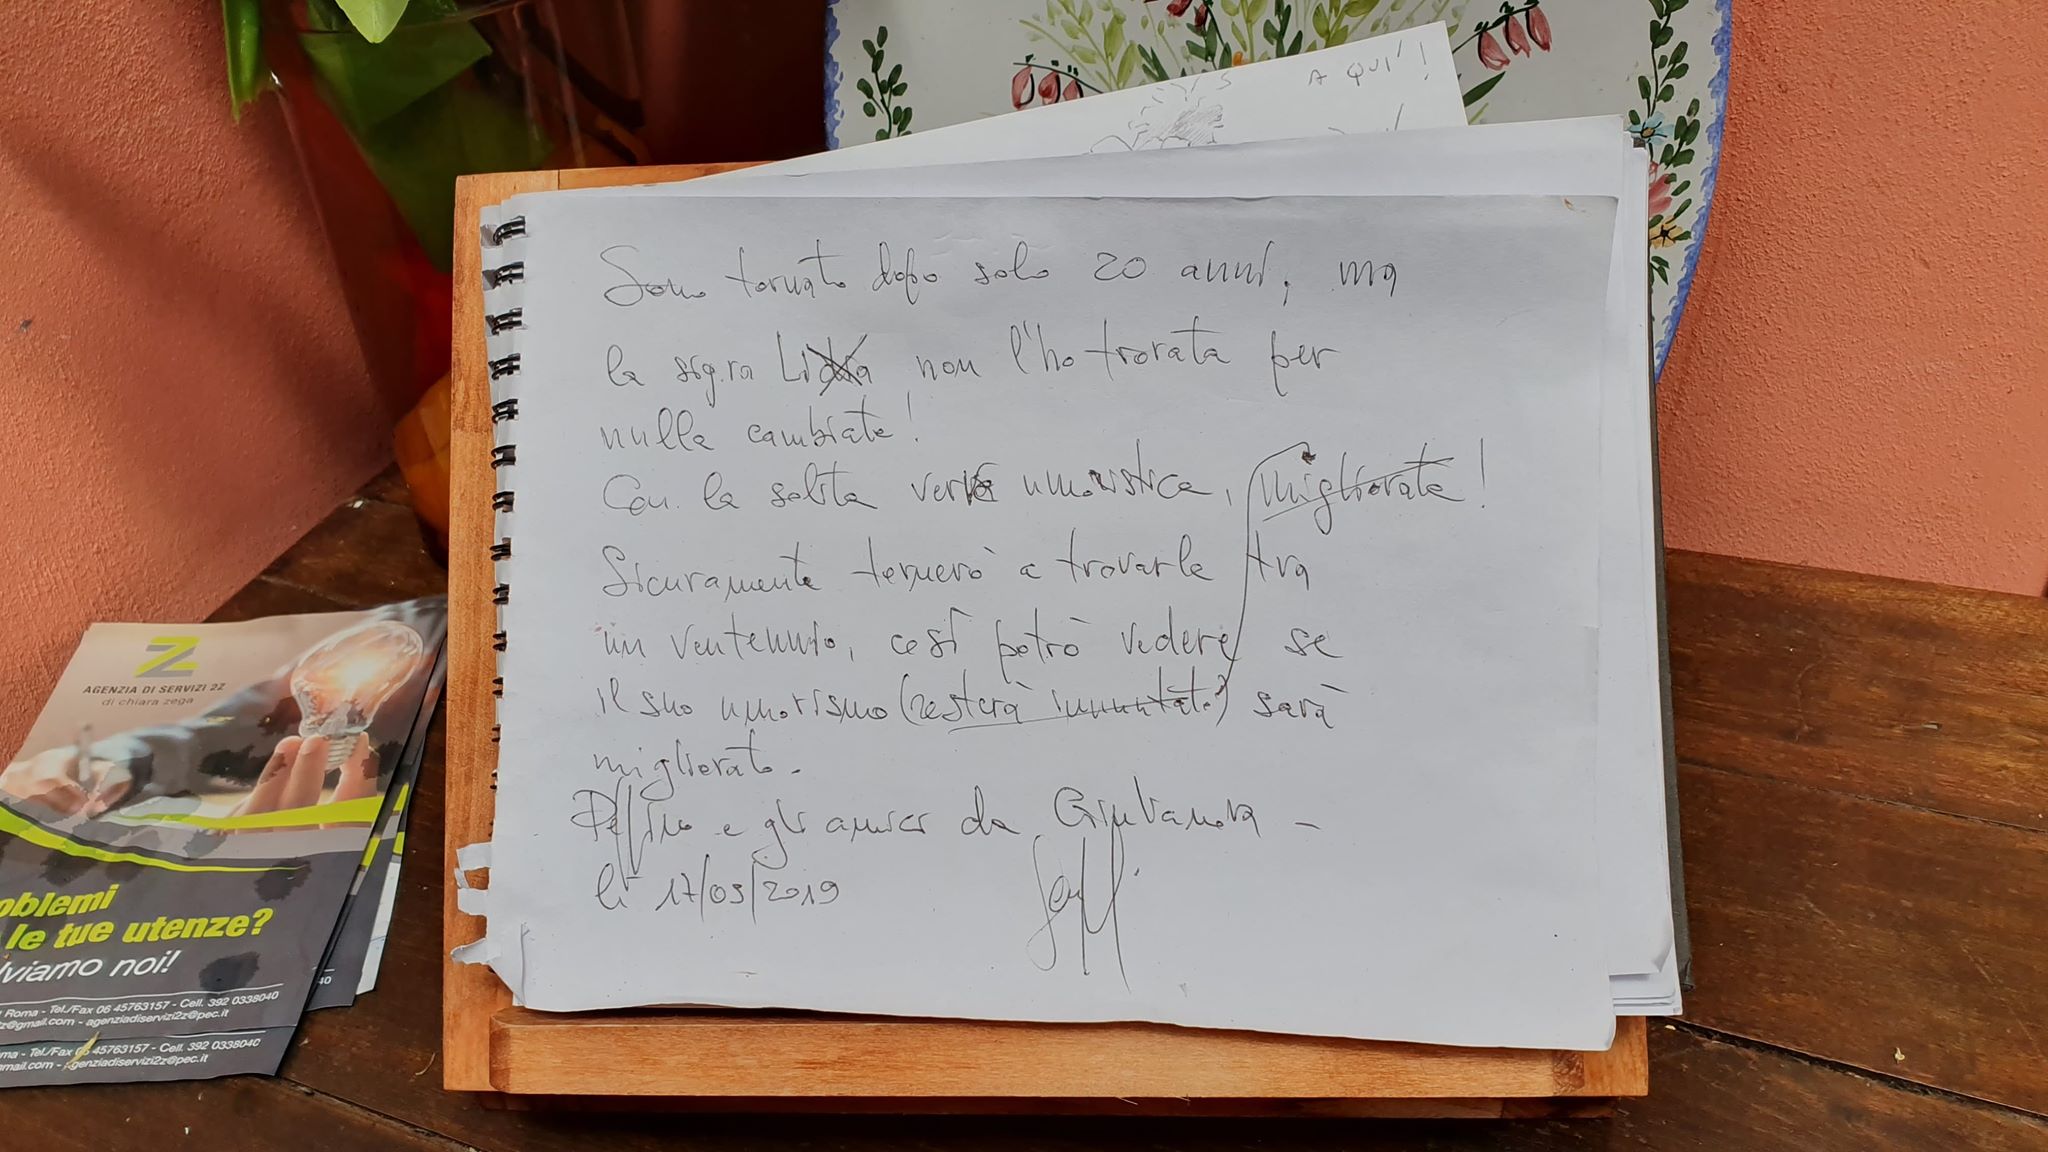 A QUI'!
Sono tornato dopo solo 20 anni, ma
la sig.ra Lidia non l'ho trovata per
nulla cambiata!
Con la solita verve umoristica, migliorata!
Sicuramente tornerò a trovarla tra
un ventennio, così potrò vedere se
il suo umorismo (resterà immutato) sarà
migliorato.
e gli amici da Giulianova -
lì 17/03/2019
2Z
AGENZIA DI SERVIZI 2Z
di chiara zega
oblemi
le tue utenze?
lviamo noi!
Roma - Tel./Fax 06 45763157 - Cell. 392 0338040
z@gmail.com - agenziadiservizi2z@pec.it
40
oma - Tel./Fax 06 45763157 - Cell. 392 0338040
mail.com - agenziadiservizi2z@pec.it